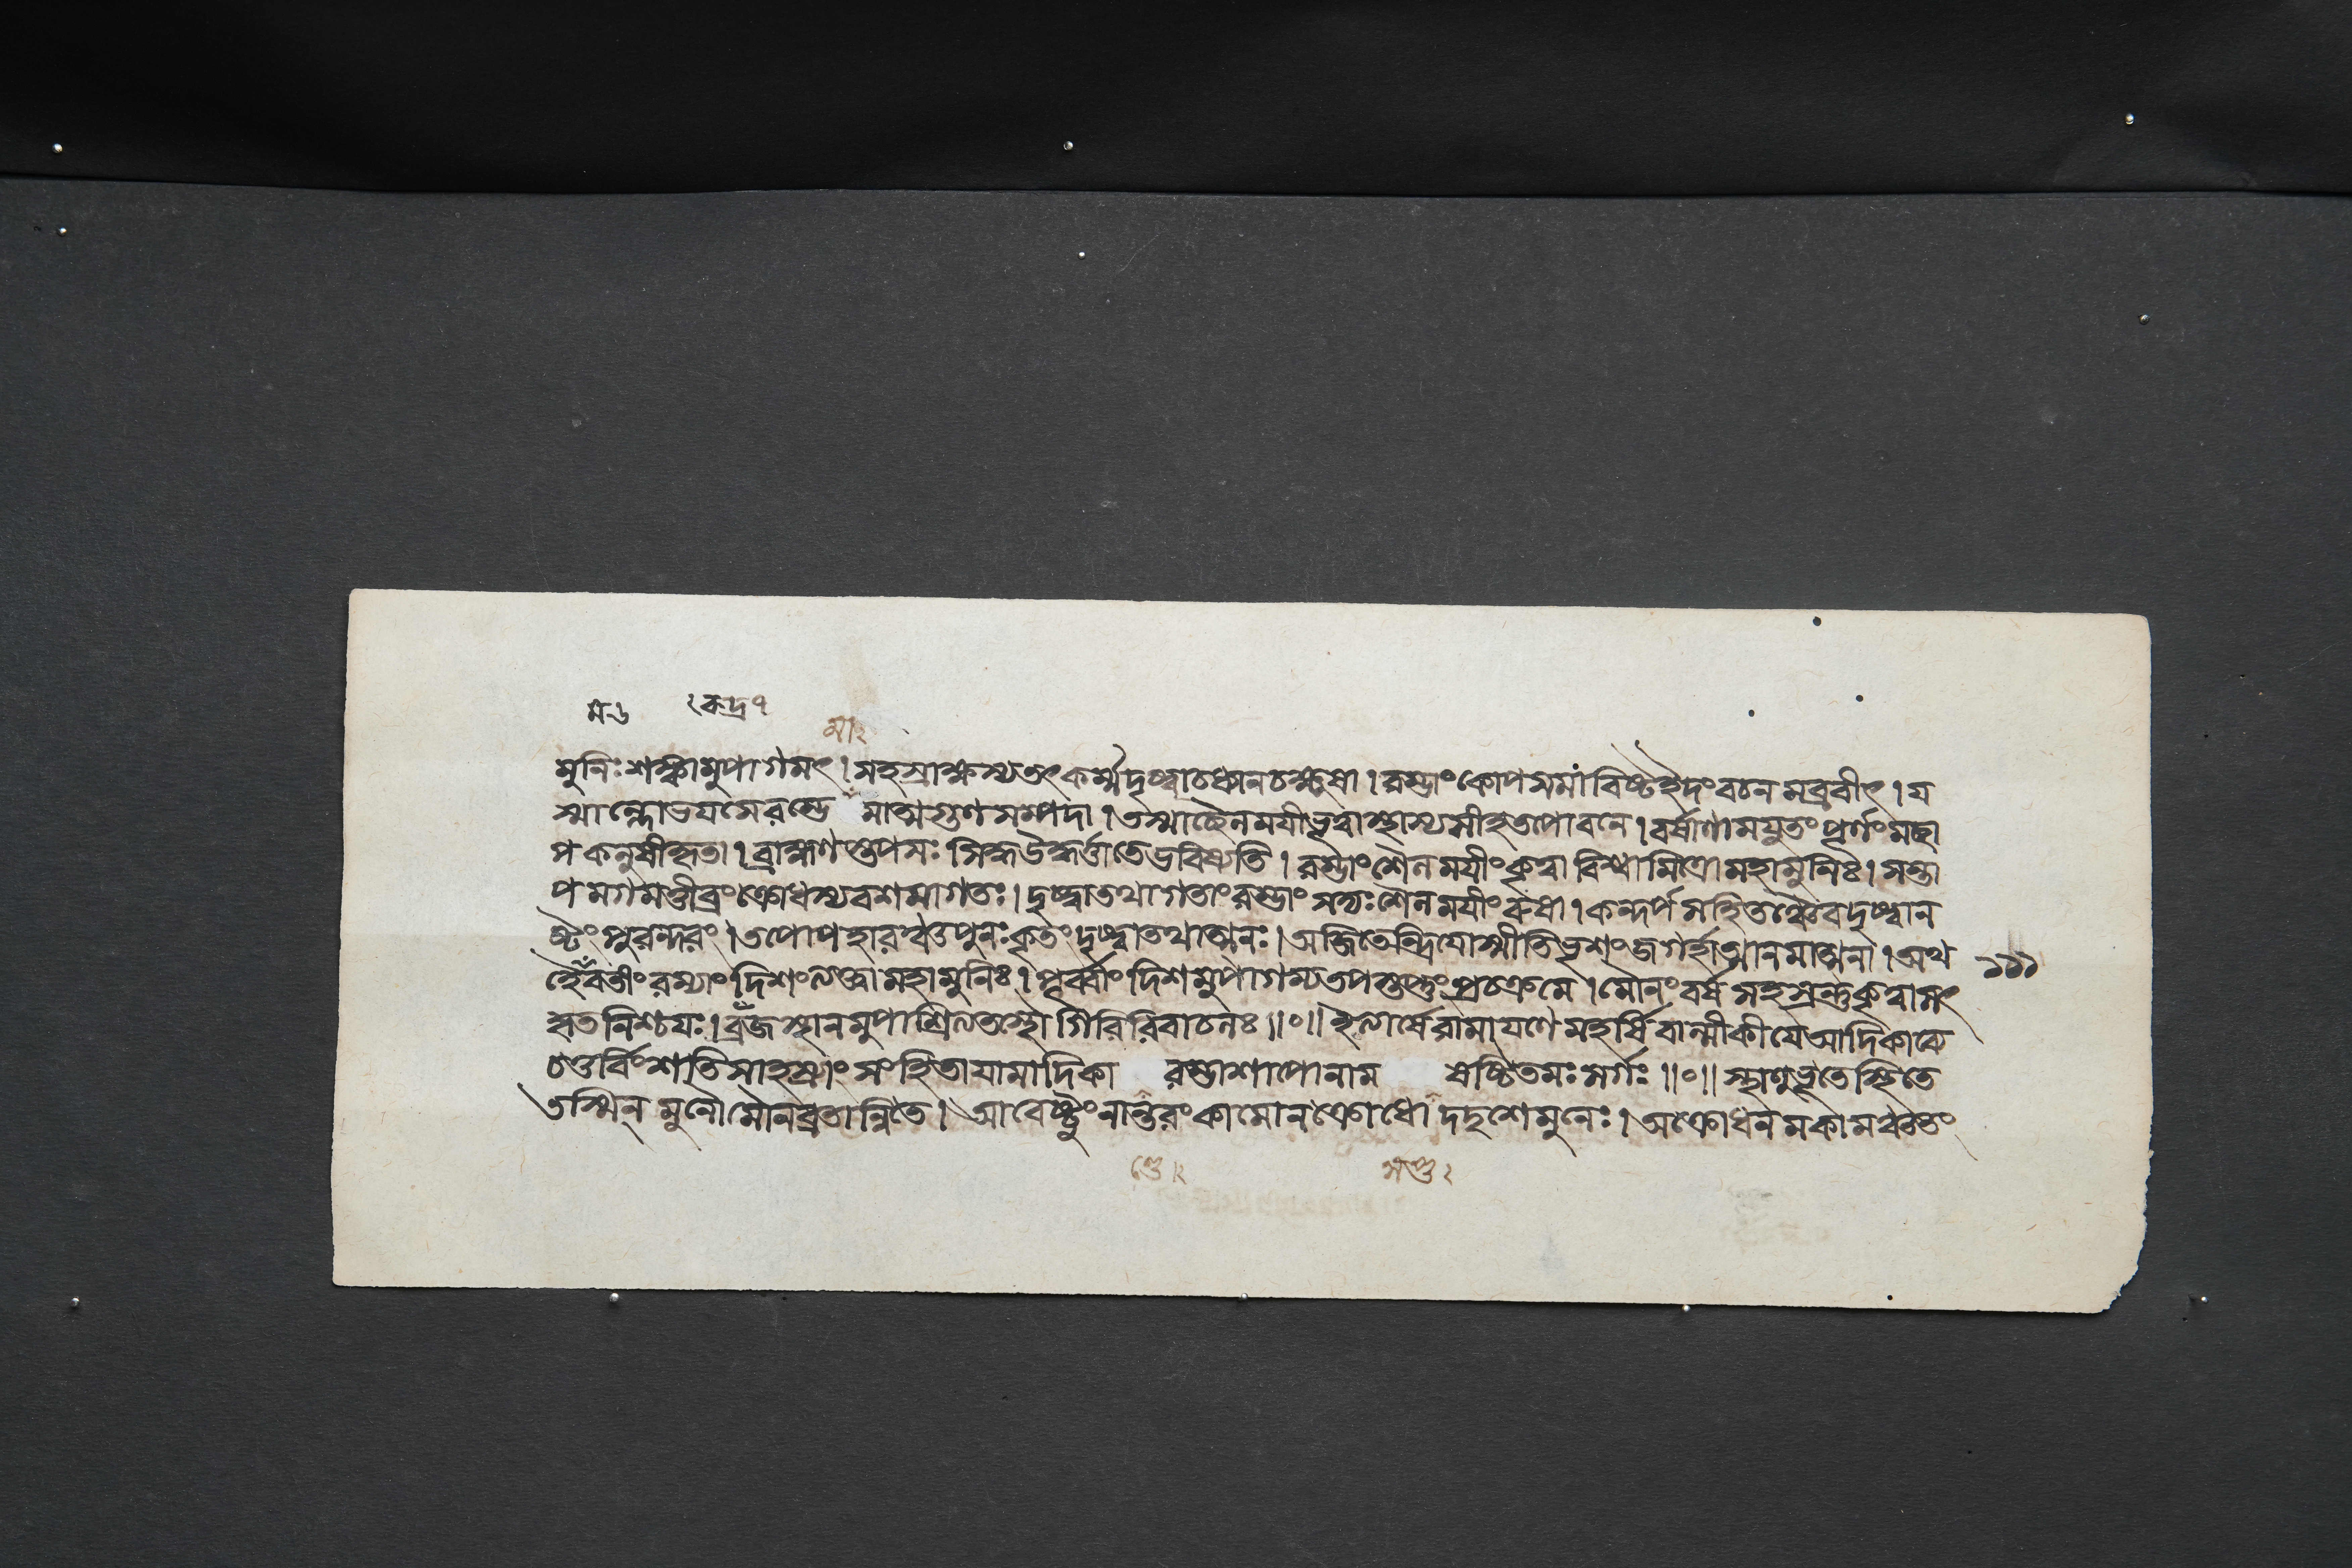 স ৬ ২কদ্র৭
মা২
মুনিঃ শঙ্কামুপাগমৎ । সহস্রাক্ষস্য তৎ কর্ম্ম দৃষ্ট্বা চ ধ্যানচক্ষুষা । রম্ভাং কোপসমাবিষ্ট ইদং বচনমব্রবীৎ । য
স্মাল্লোভযসে রম্ভে মাত্মগুণসম্পদা । তস্মাচ্ছৈলময়ী ভূত্বা স্থাস্যসীহ তপোবনে । বর্ষাণামযুতং পূর্ণং মচ্ছা
পকলুষীকৃতা । ব্রাহ্মণস্তপসঃ ভবিষ্যতি । রম্ভাং শৈলময়ীং কৃত্বা বিশ্বামিত্রো মহামুনিঃ । সন্তা
পমগমত্তীব্রং ক্রোধস্য বশমাগতঃ । দৃষ্ট্বা তথাগতাং রম্ভাং সদ্যঃ শৈলময়ীং রুষা । কন্দর্পসহিতঞ্চৈব দৃষ্ট্বা ন
ষ্টং পুরন্দরং । তপোপহারঞ্চ পুনঃ কৃতং দৃষ্ট্বা তথাত্মনঃ । অজিতেন্দ্রিয়োস্মীতি ভৃশং জগর্হাত্মানমাত্মনা । অথ
হৈমবতীং রম্যাং দিশং ত্যক্ত্বা মহামুনিঃ । পূর্ব্বাং দিশমুপাগম্য তপস্তপ্তুং প্রচক্রমে । মৌনং বর্ষসহস্রন্তু কৃত্বা স
কৃতনিশ্চয়ঃ । বজ্রস্থানমুপাশ্রিত্য তস্থৌ গিরিরিবাচলঃ ॥০॥ ইত্যার্ষে রামায়ণে মহর্ষি বাল্মীকীয়ে আদিকাব্যে
চতুর্বিংশতিসাহস্র্যাং সংহিতায়ামাদিকা রম্ভাশাপো নাম ষষ্টিতমঃ সর্গঃ ॥০॥ স্থাণুভূতে স্থিতে
তস্মিন্ মুনৌ মৌনব্রতান্বিতে । আবেষ্টুং নান্তরং কামো ন ক্রোধো দদৃশে মুনেঃ । অক্রোধনমকামঞ্চ তং
১১১
ণ্ডে২ সপ্ত২